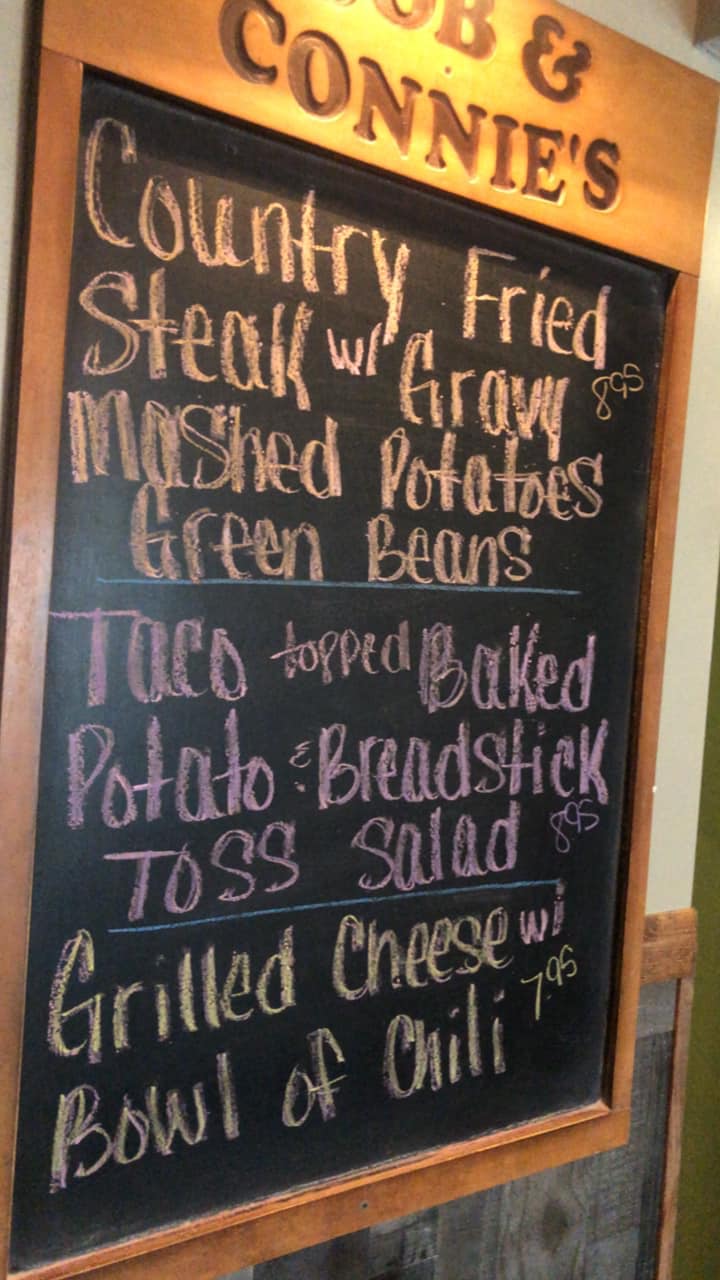 OB &
CONNIE'S
Country Fried
Steak w/ Gravy 8.95
Mashed Potatoes
Green Beans
Taco topped Baked
Potato & Breadstick
Toss Salad 8.95
Grilled Cheese w/
Bowl of Chili 7.95